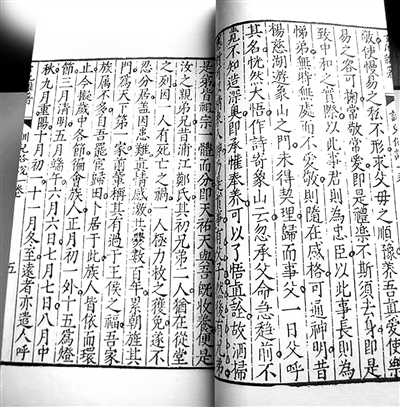 儆使慢易之私不形求父母之順豫養吾愛使樂
易之容可掬常敬常愛即是禮樂不斯須去身即是
致中和之實際以此事君則為忠臣以此事長則為
悌弟無時無處而不愛敬則隨在感格可通神明昔
楊慈湖遊象山之門未得契理歸而事父一日父呼
其名恍然大悟作詩寄象山云忽承父命急趨前不
覺不知造深奧即承惟奉養可以了悟真詮故洒掃
是弟兄祖宗一體而分即天祐天與吾既收養便是
汝之親弟兄昔浦江鄭氏其初兄弟二人猶在從堂
之列因一人有死亡之禍一人極力救之獲免遂不
忍分居蓋因患難真情感激共爨數百年累朝旌其
門為天下第一家前輩稱其有過于王侯之福吾家
族屬不多自吾罷宦歸田卜居于此族人皆依而環
止今擬歲中各節徧會族人正月初一外十五為燈
節三月清明五月端午六月六日七月七日八月中
秋九月重陽十月初一十一月冬至遠者亦遣人呼
訓兒俗說 卷
五